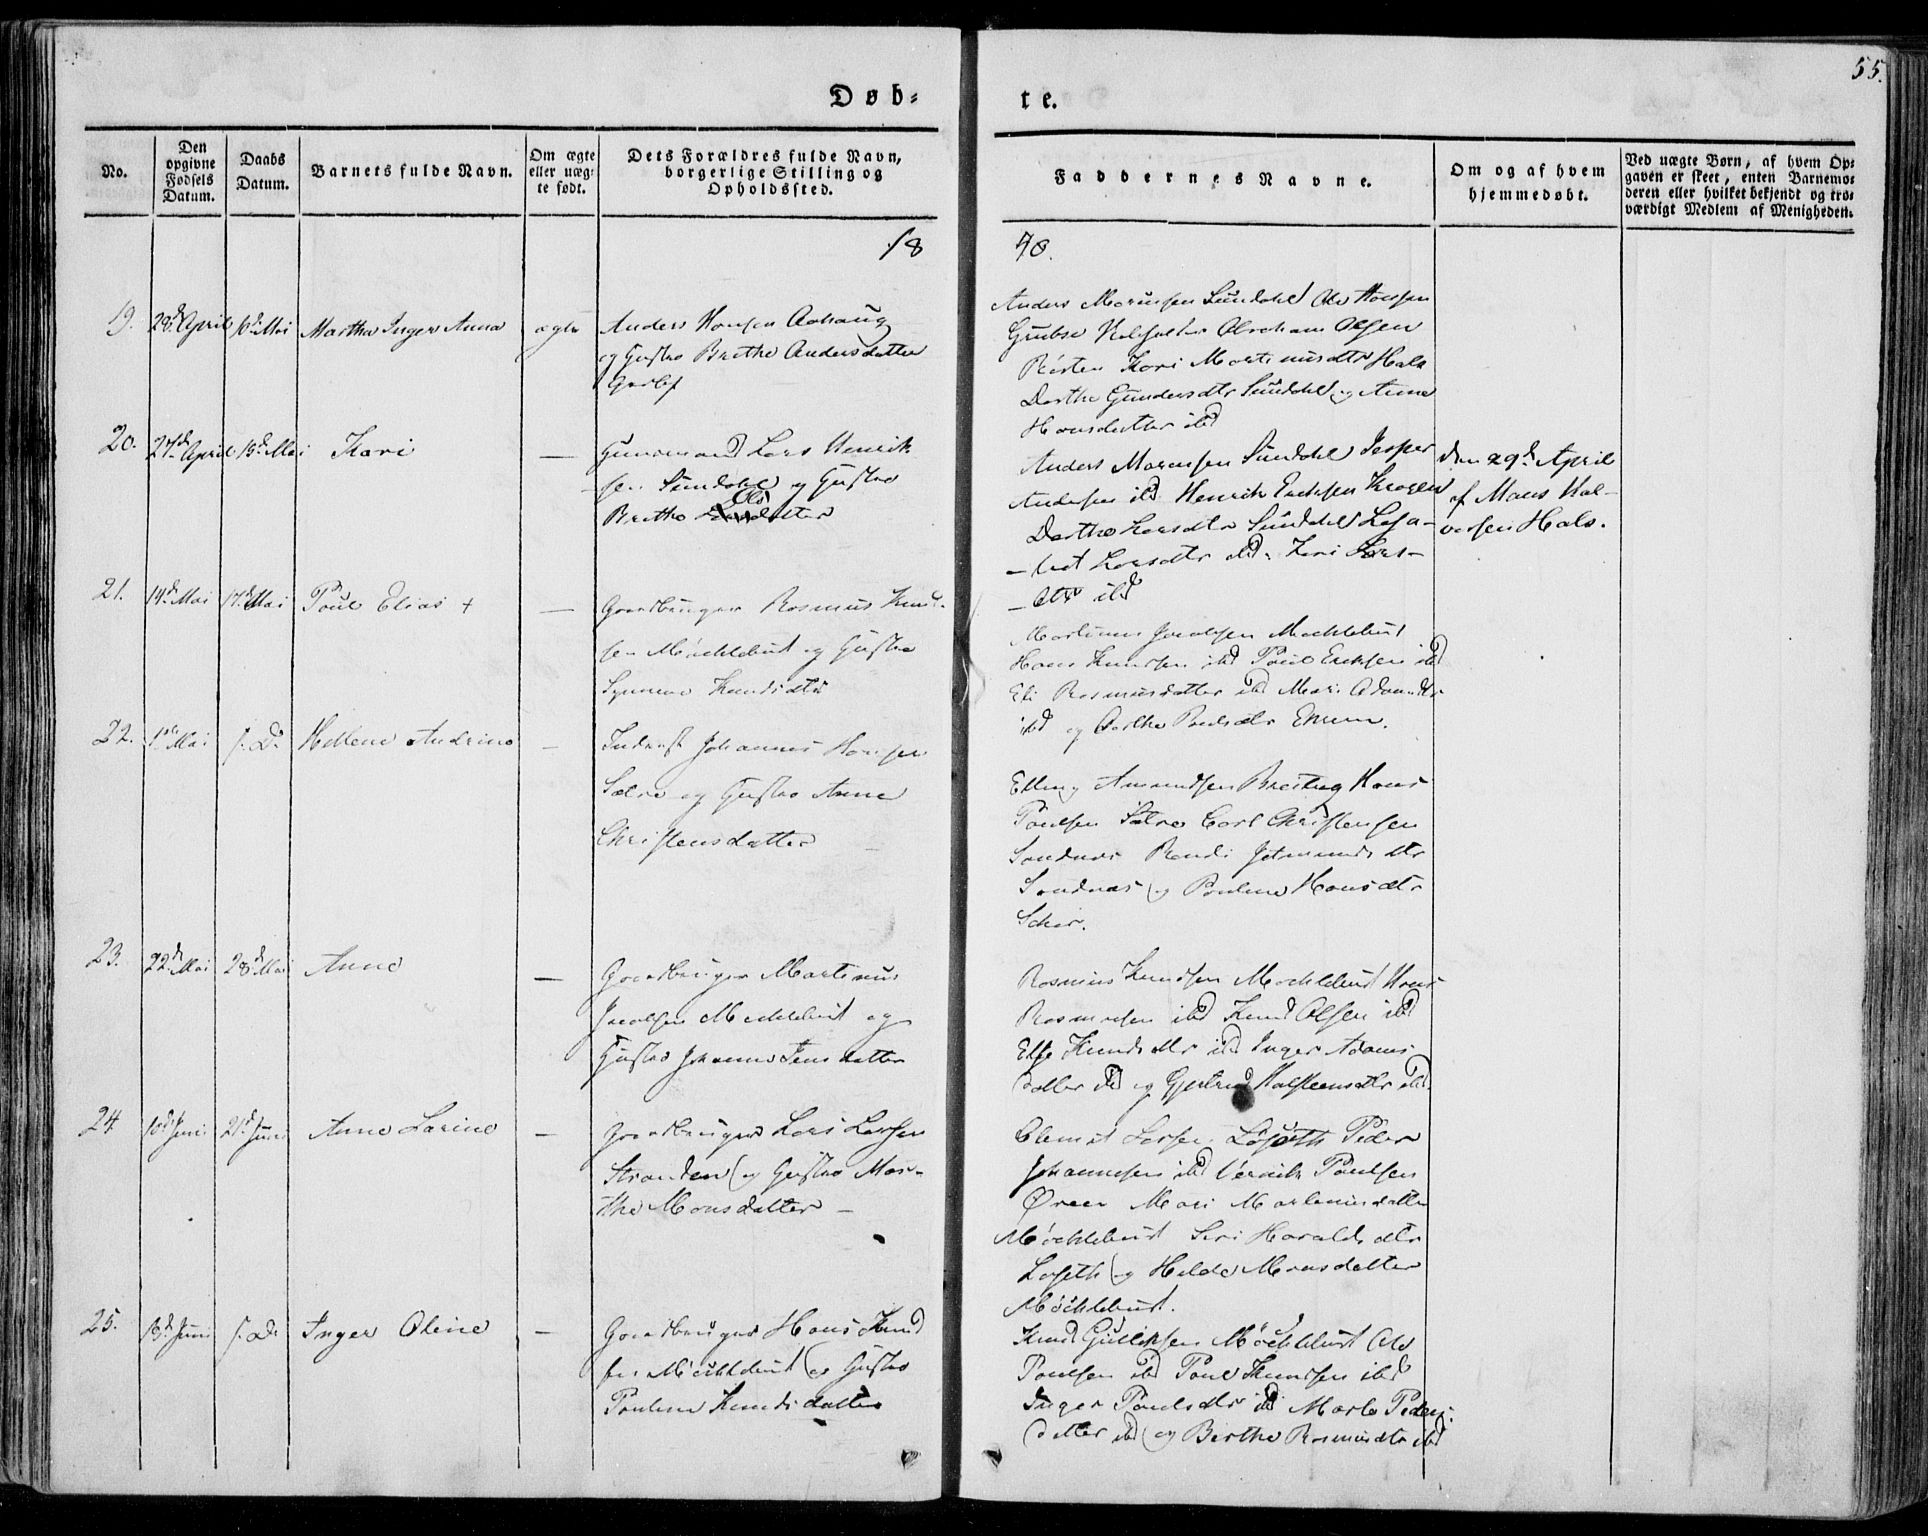 55.
Døb=
te.
No.
Den opgivne Fødsels Datum.
Daabs Datum.
Barnets fulde Navn.
Om ægte eller uæg= te født.
Dets Forældres fulde Navn, borgerlige Stilling og Opholdssted.
Faddernes Navne.
Om og af hvem hjemmedøbt.
Ved uægte Børn, af hvem Op= gaven er skeet, enten Barnemo= deren eller hvilket bekjendt og tro= værdigt Medlem af Menigheden.
18
48.
19. 28d April Mai Martha Inger Anna ægte
Anders Hansen Aahaug
og Gustro Brithe Andersdatter
Anders Monsen Sundahl Ole Hansen
Abraham Olsen
Kari Martinusdtr Hals
Dorthe Gundersdtr Sundahl og Anne
Hansdatter ibd
20. 27d April 19d Mai Kari —
Gunmand Lars Henrik
sen Sundahl og Gustro
Brithe Ols datter
Anders Monsen Sundahl Jesper
Andersen ibd Henrik Eriksen Krogen
Dorthe Larsdtr Sundahl Lisa-
-bet Larsdtr ibd. Kari Lars-
-dtr ibd
den 29d April
af Mons Hal-
vorsen Hals.
21. 14d Mai 17d Mai Poul Elias + —
Gaardbruger Rasmus Knud-
sen Möcklebust og Gustro
Synneve Knudsdtr
Martinus Jacobsen Möcklebust
Hans Knudsen ibd Poul Eriksen ibd
Eli Rasmusdatter ibd Mari Adamsdtr
ibd og Dorthe Poulsdtr
22. 1ste Mai s. D. Hellene Andrine —
Inderst Johannes Hansen
Sætre og Gustro Anne
Christensdatter
Elling Amundsen Hans
Poulsen Sætre Carl Christensen
Sandnæs Randi dtr
Sandnæs og Pauline Hansdtr
23. 22d Mai 28d Mai Anne —
Gaardbruger Martinus
Jacobsen Möcklebust og
Gustro Johanne Jensdatter
Rasmus Knudsen Möcklebust Hans
Rasmusen ibd Knud Olsen ibd
Knudsdtr ibd Inger Adams-
datter ibd og Gjertrud Halsteensdtr ibd.
24 10d Juni 21d Juni Anne Larine —
Gaardbruger Lars Larsen
Stranden og Gustro Mar-
the Monsdatter —
Clemet Larsen Løseth Peder
Johannesen ibd Poulsen
Øren Mari Martinusdatter
Möcklebust Siri Haraldsdtr
Løseth og Hilde Monsdatter
Möcklebust.
25. 13d Juni s. D. Inger Oline —
Gaardbruger Hans Knud
sen Möcklebust og Gustro
Pauline Knudsdatter
Knud Gulliksen Möcklebust Ole
Poulsen ibd Poul Knudsen ibd
Inger Poulsdtr ibd Marte Peders-
datter ibd og Berthe Rasmusdtr ibd